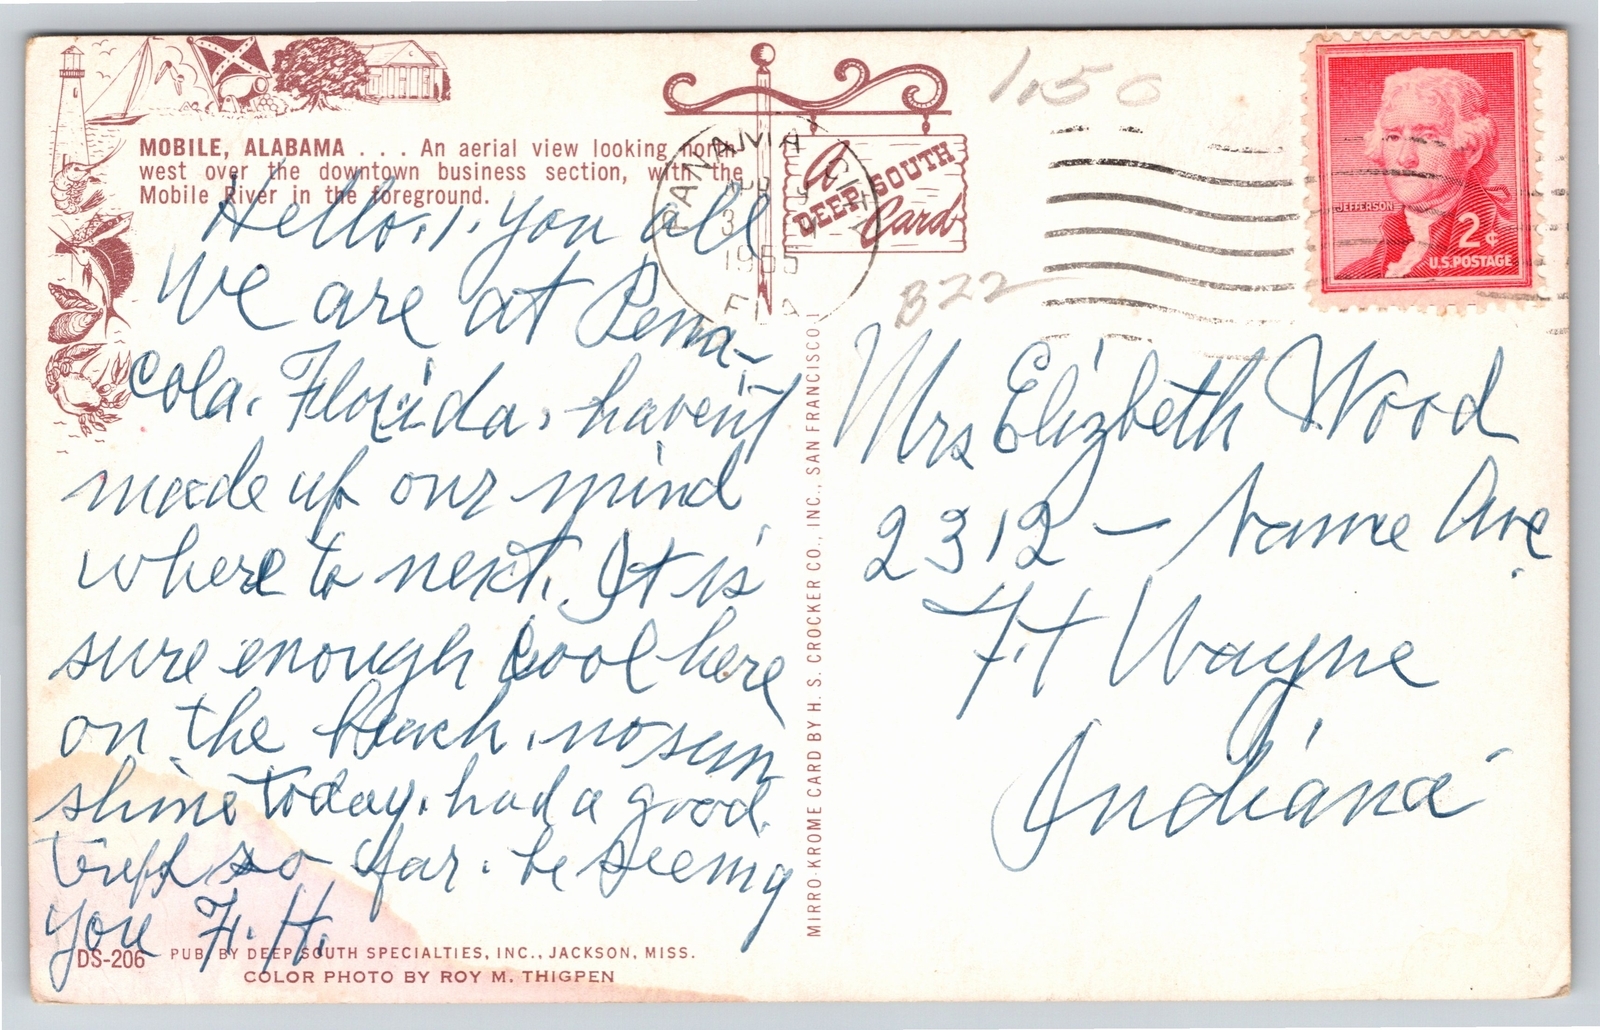 MOBILE, ALABAMA . . . An aerial view looking north
west over the downtown business section, with the
Mobile River in the foreground.
A
DEEP SOUTH
Card
PANAMA
3
1955
FLA
1.50
B22
JEFFERSON
2¢
U.S. POSTAGE
Hello, you all
We are at Pensa-
cola. Florida, haven't
made up our mind
where to next. It is
sure enough cool here
on the beach, no sun
shine today. had a good
tripp so far. be seeing
you F. H.
Mrs Elizbeth Wood
2312 - Ave
Ft Wayne
Indiana
MIRRO-KROME CARD BY H. S. CROCKER CO., INC., SAN FRANCISCO.1
DS-206 PUB. BY DEEP SOUTH SPECIALTIES, INC., JACKSON, MISS.
COLOR PHOTO BY ROY M. THIGPEN